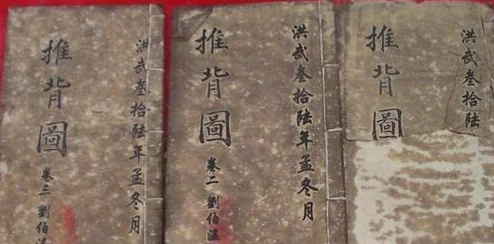 洪武叁拾陆年孟冬月
推背圖
卷三 劉伯温
洪武叁拾陆年孟冬月
推背圖
卷二 劉伯温
洪武叁拾陆
推背圖